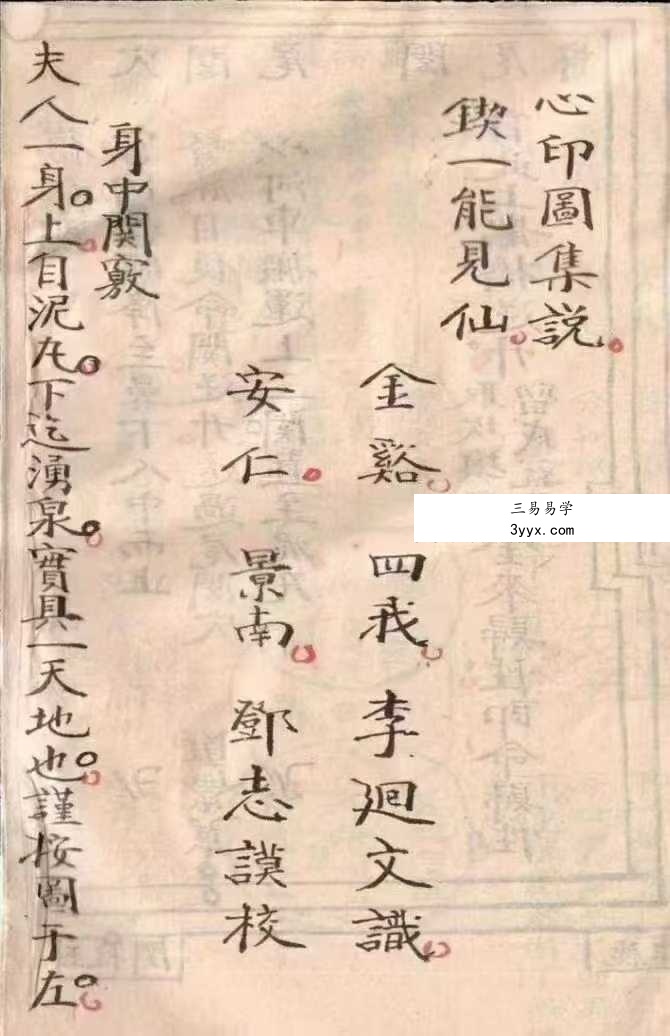 心印圖集說。
鍥一能見仙。
金谿。四我。李廻文識。
安仁。景南。鄧志謨校
身中関竅
夫人一身。上自泥丸。下迄湧泉。實具一天地也。謹按圖于左。
三易易学
3yyx.com